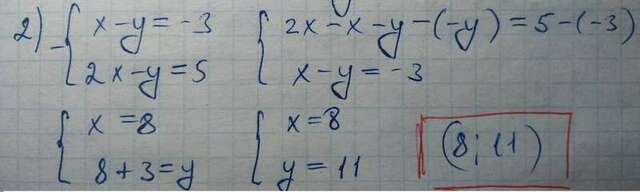 2) - { x - y = -3
2x - y = 5
{ 2x - x - y - (-y) = 5 - (-3)
x - y = -3
{ x = 8
8 + 3 = y
{ x = 8
y = 11
(8; 11)